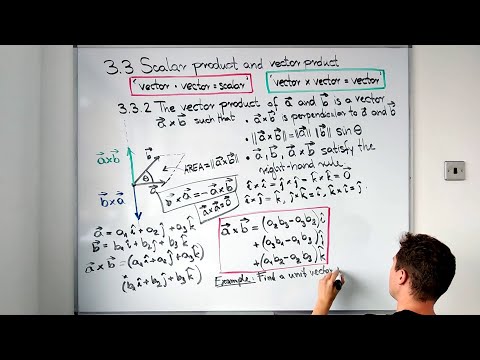 3.3 Scalar product and vector product
vector · vector = scalar
vector × vector = vector
3.3.2 The vector product of a⃗ and b⃗ is a vector
a⃗×b⃗ such that
• a⃗×b⃗ is perpendicular to a⃗ and b⃗
• ||a⃗×b⃗|| = ||a⃗|| ||b⃗|| sin θ
• a⃗, b⃗, a⃗×b⃗ satisfy the
right-hand rule
a⃗×b⃗
b⃗
θ
a⃗
b⃗×a⃗
AREA = ||a⃗×b⃗||
b⃗×a⃗ = -a⃗×b⃗
a⃗×a⃗ = 0⃗
î×î = ĵ×ĵ = k̂×k̂ = 0⃗
î×ĵ = k̂, ĵ×k̂ = î, k̂×î = ĵ
a⃗ = a₁î + a₂ĵ + a₃k̂
b⃗ = b₁î + b₂ĵ + b₃k̂
a⃗×b⃗ = (a₁î + a₂ĵ + a₃k̂)
×(b₁î + b₂ĵ + b₃k̂)
a⃗×b⃗ = (a₂b₃-a₃b₂)î
+(a₃b₁-a₁b₃)ĵ
+(a₁b₂-a₂b₁)k̂
Example: Find a unit vector